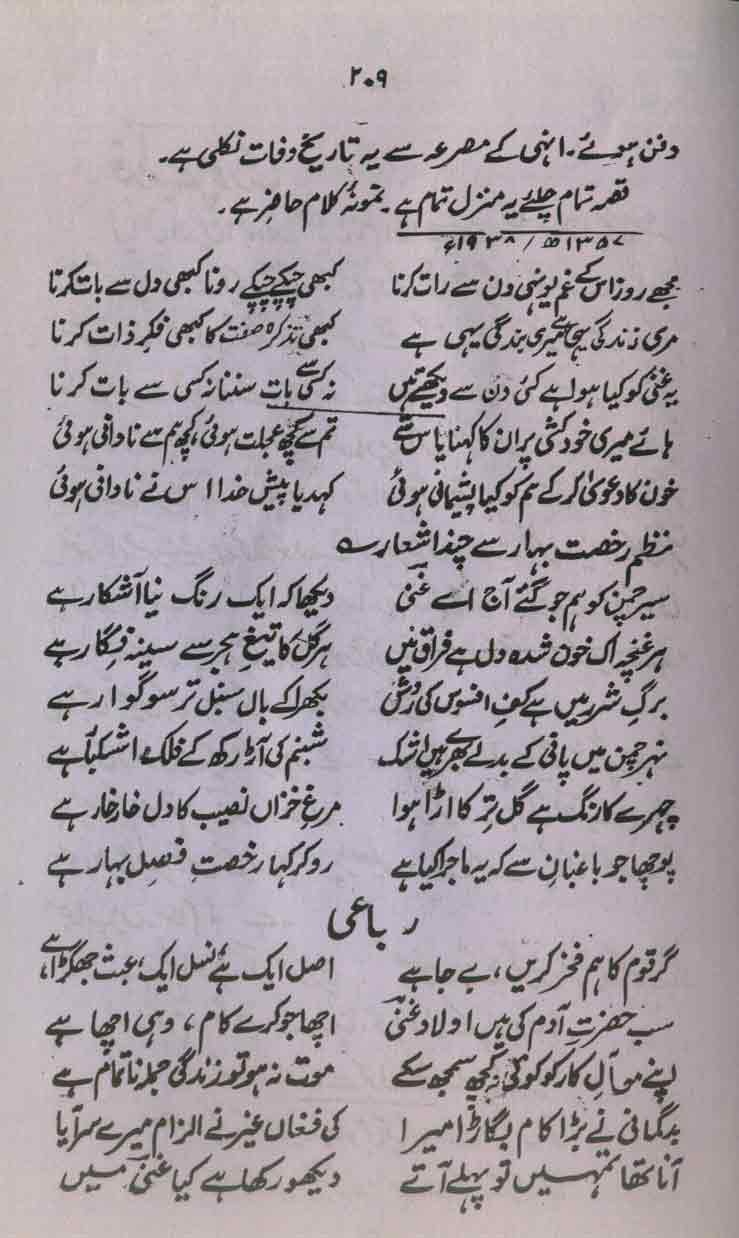 ۲۰۹
دفن ہوئے۔ انہی کے مصرعہ سے یہ تاریخ وفات نکلی ہے۔
قصہ تمام چلئے یہ منزل تمام ہے۔ نمونۂ کلام حاضر ہے۔
۱۳۵۷ھ / ۱۹۳۸ء
مجھے روز اس کے غم یونہی دن سے رات کرنا کبھی چپکے چپکے رونا کبھی دل سے بات کرنا
مری زندگی یہی ہے میری بندگی یہی ہے کبھی تذکرہ صفت کا کبھی فکرِ ذات کرنا
یہ غنی کو کیا ہوا ہے کئی دن سے دیکھتے ہیں نہ کسی سے بات سننا نہ کسی سے بات کرنا
ہائے میری خودکشی پر ان کا کہنا یاس سے تم سے کچھ عجلت ہوئی، کچھ ہم سے نادانی ہوئی
خون کا دعویٰ کر کے ہم کو کیا پشیمانی ہوئی کہدیا پیش خدا اس نے نادانی ہوئی
نظم رخصت بہار سے چند اشعار ے
سیر چمن کو ہم جو گئے آج اے غنی دیکھا کہ ایک رنگ نیا آشکار ہے
ہر غنچہ اک خون شدہ دل ہے فراق میں ہر گل کا تیغِ ہجر سے سینہ فگار ہے
برگِ شجر میں ہے کفِ افسوس کی روش بکھرا کے بال سنبلِ تر سوگوار ہے
نہر چمن میں پانی کے بدلے بھرے ہیں اشک شبنم کی آڑ رکھ کے فلک اشکبار ہے
چہرے کا رنگ ہے گل تر کا اڑا ہوا مرغِ خزاں نصیب کا دل خار خار ہے
پوچھا جو باغبان سے کہ یہ ماجرا کیا ہے رو کر کہا رخصتِ فصلِ بہار ہے
رباعی
گر قوم کا ہم فخر کریں، بے جا ہے اصل ایک ہے نسل ایک، عبث جھگڑا ہے
سب حضرتِ آدم کی ہیں اولاد غنی اچھا جو کرے کام، وہی اچھا ہے
اپنے مآلِ کار کو کوئی نہ کچھ سمجھ سکے موت نہ ہو تو زندگی جملہ ناتمام ہے
بدگمانی نے بڑا کام بگاڑا میرا کی فغاں غیر نے الزام میرے سر آیا
آنا تھا تمہیں تو پہلے آتے دیکھو رکھا ہے کیا غنی میں